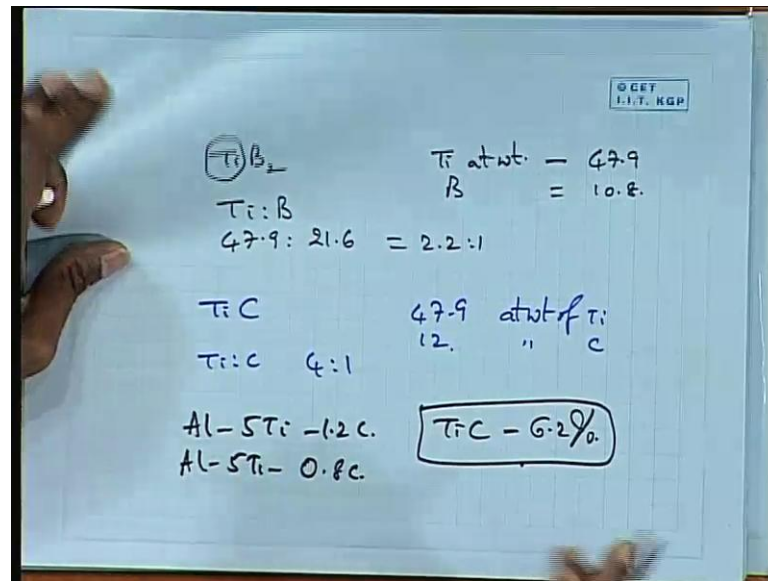 © CET
I.I.T. KGP
TiB₂
Ti at wt. - 47.9
B = 10.8.
Ti:B
47.9: 21.6 = 2.2:1
TiC
47.9 at wt of Ti
12. " C
Ti:C 4:1
Al-5Ti-1.2C.
TiC - 6.2%.
Al-5Ti- 0.8C.